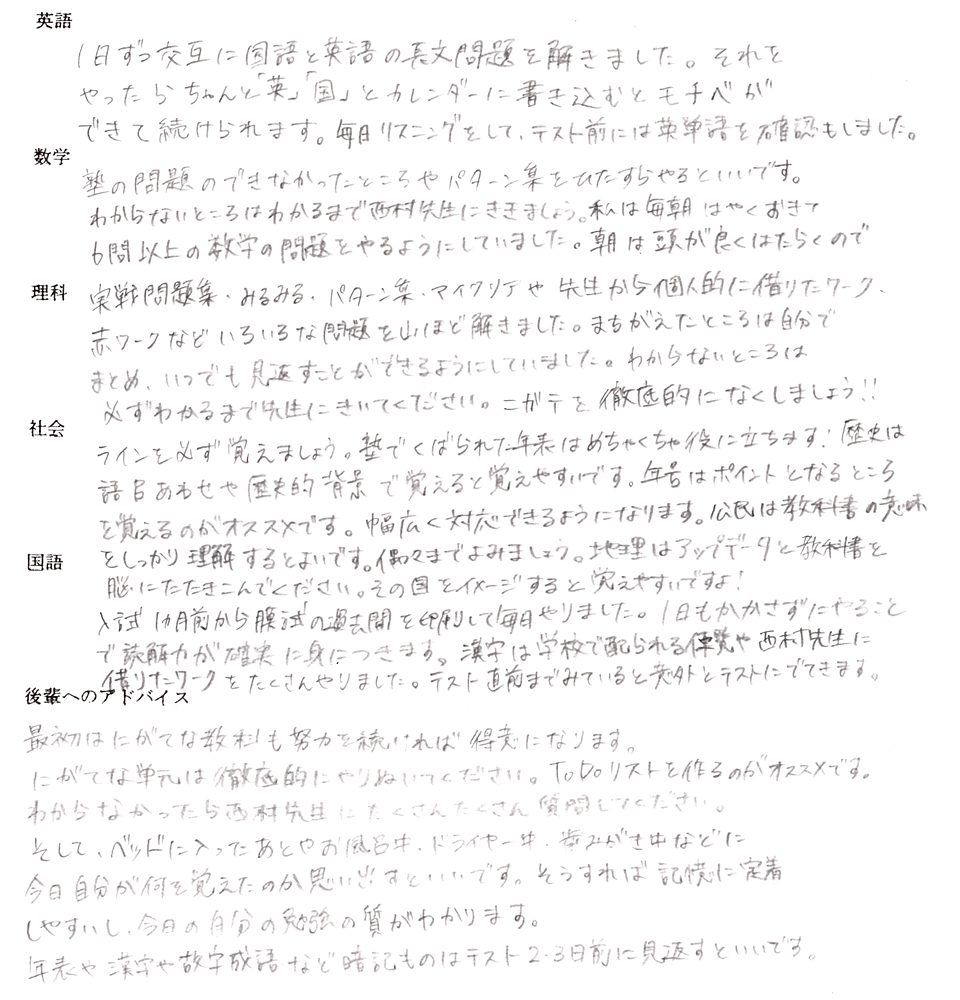 英語
1日ずつ交互に国語と英語の長文問題を解きました。それを
やったらちゃんと「英」「国」とカレンダーに書き込むとモチベが
できて続けられます。毎日リスニングをして、テスト前には英単語を確認もしました。
数学
塾の問題のできなかったところやパターン集をひたすらやるといいです。
わからないところはわかるまで西村先生にききましょう。私は毎朝はやくおきて
6問以上の数学の問題をやるようにしていました。朝は頭が良くはたらくので
理科
実戦問題集・みるみる・パターン集・マイクリアや先生から個人的に借りたワーク、
赤ワークなどいろいろな問題を山ほど解きました。まちがえたところは自分で
まとめ、いつでも見返すことができるようにしていました。わからないところは
必ずわかるまで先生にきいてください。ニガテを徹底的になくしましょう!!
社会
ラインを必ず覚えましょう。塾でくばられた年表はめちゃくちゃ役に立ちます!歴史は
語呂あわせや歴史的背景で覚えると覚えやすいです。年号はポイントとなるところ
を覚えるのがオススメです。幅広く対応できるようになります。公民は教科書の意味
国語
をしっかり理解するとよいです。偶々までよみましょう。地理はアップデータと教科書を
脳にたたきこんでください。その国をイメージすると覚えやすいですよ!
入試1カ月前から模試の過去問を印刷して毎日やりました。1日もかかさずにやること
で読解力が確実に身につきます。漢字は学校で配られる便覧や西村先生に
借りたワークをたくさんやりました。テスト直前までみていると意外とテストにでてきます。
後輩へのアドバイス
最初はにがてな教科も努力を続ければ得意になります。
にがてな単元は徹底的にやりぬいてください。ToDoリストを作るのがオススメです。
わからなかったら西村先生にたくさんたくさん質問してください。
そして、ベッドに入ったあとやお風呂中、ドライヤー中、歯みがき中などに
今日自分が何を覚えたのか思い出すといいです。そうすれば記憶に定着
しやすいし、今日の自分の勉強の質がわかります。
年表や漢字や故字成語など暗記ものはテスト2・3日前に見返すといいです。